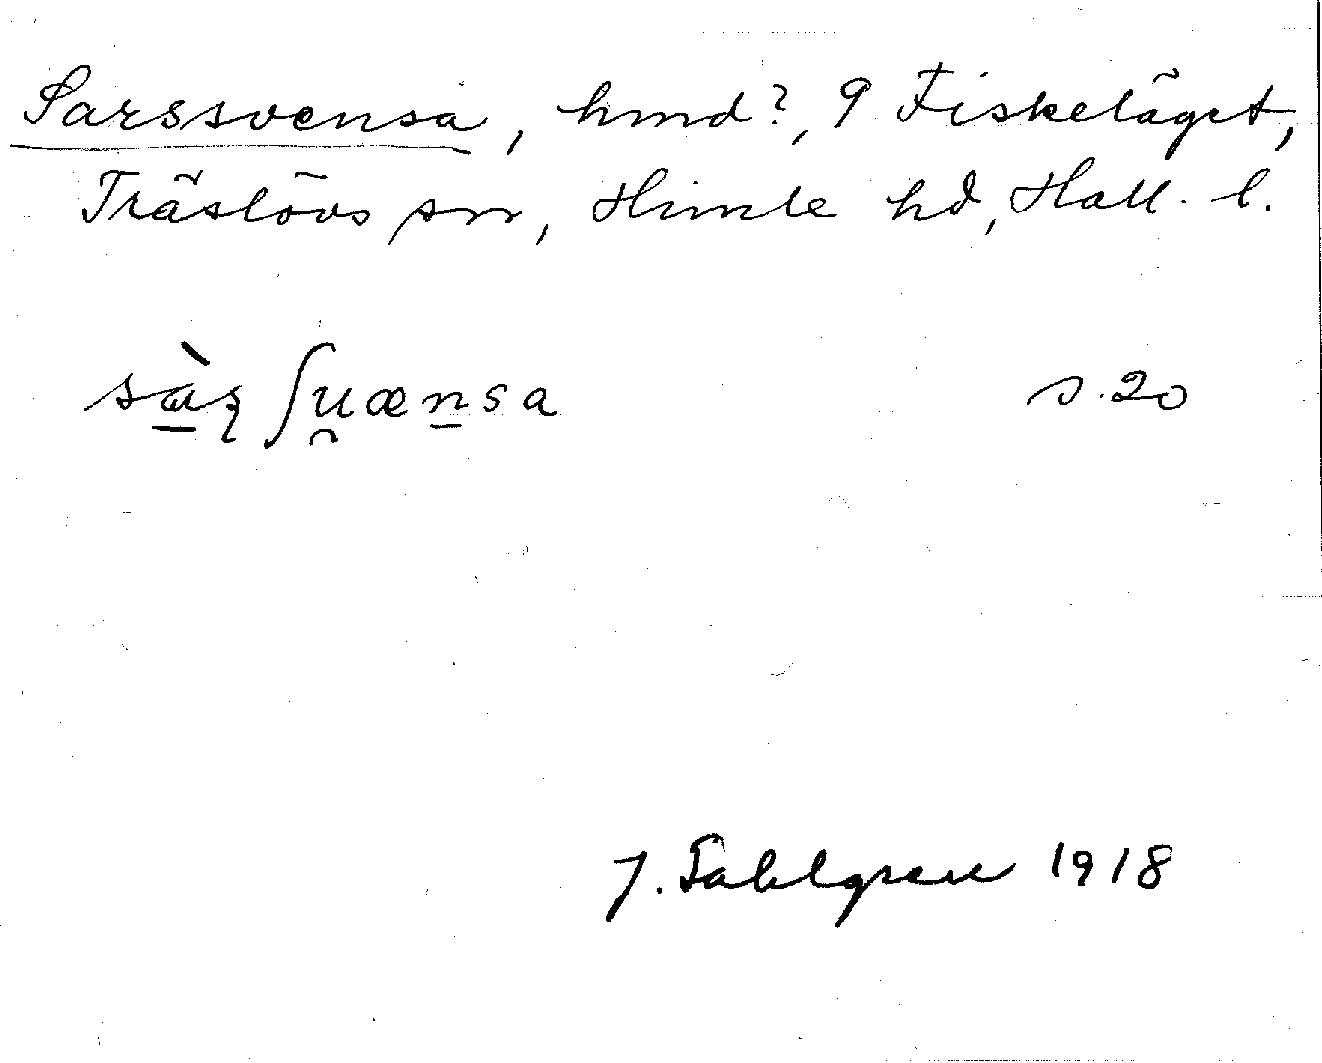 Sarssvensa, hmd?, 9 Fiskeläget,
Träslövs sn, Himle hd, Hall. l.
sàʂ ʃu̯ænsa s. 20
J. Sahlgren 1918